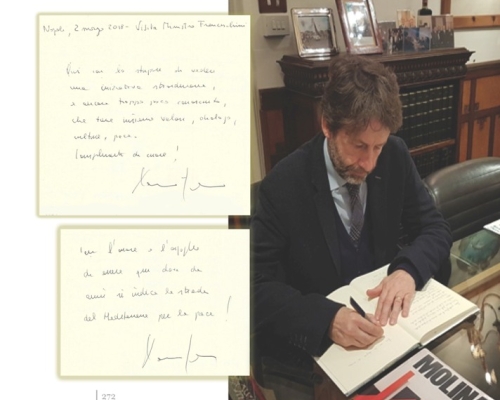 Napoli, 2 marzo 2018 - Visita Ministro Franceschini
con lo stupore di vedere
una iniziativa straordinaria,
e ancora troppo poco conosciuta,
che insieme valori, dialogo,
cultura, pace.
Complimenti di cuore!
l'onore e l'orgoglio
di da
anni si indica la strada
del Mediterraneo per la pace!
272
MOLINA